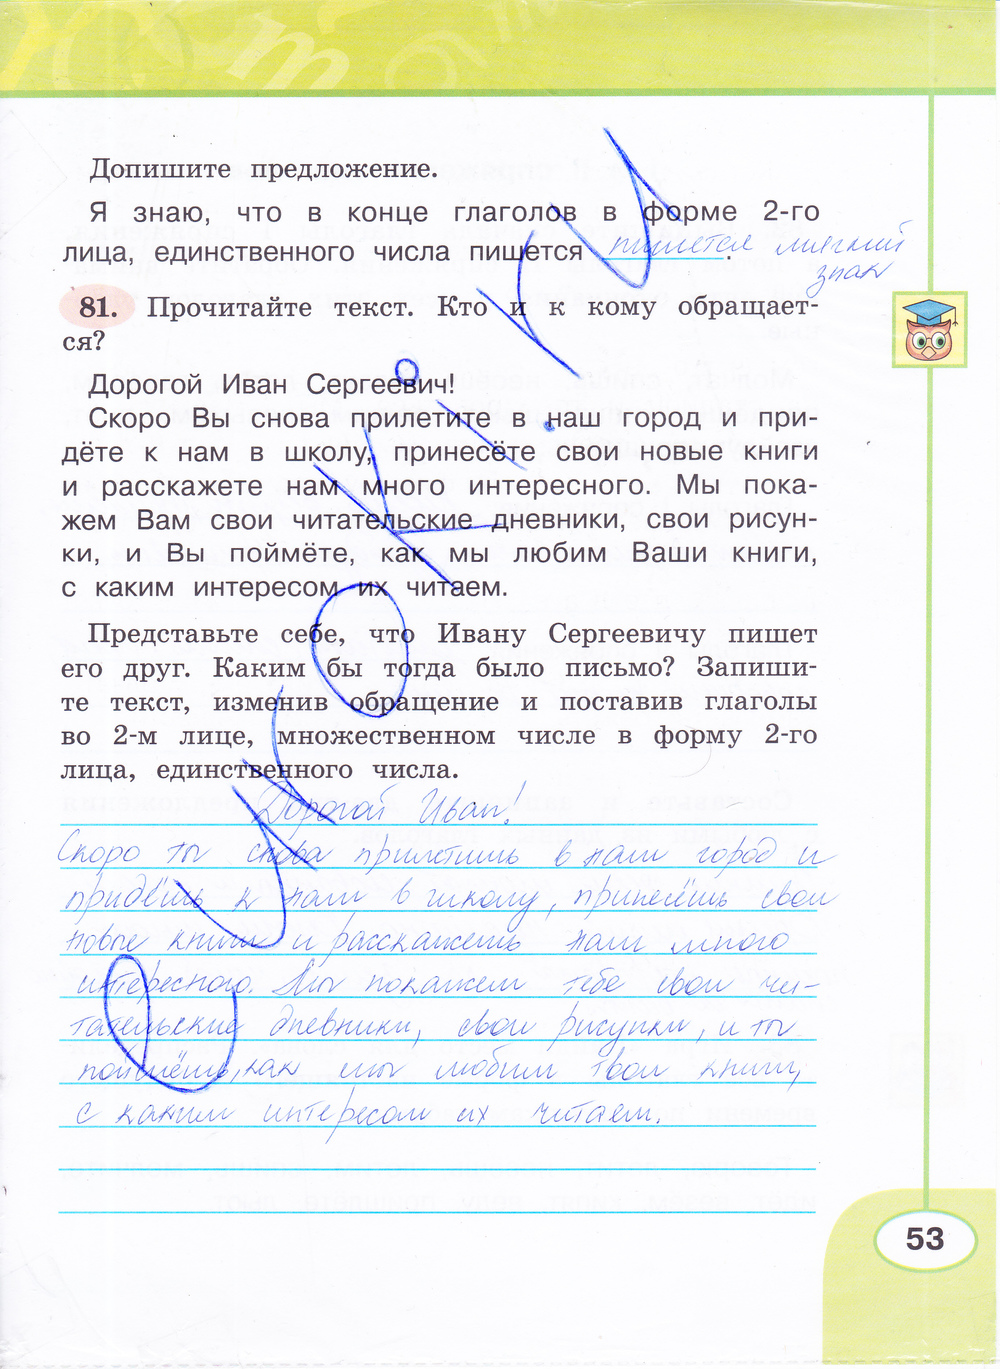 Допишите предложение.
Я знаю, что в конце глаголов в форме 2-го
лица, единственного числа пишется пишется мягкий
знак.
81. Прочитайте текст. Кто и к кому обращает-
ся?
Дорогой Иван Сергеевич!
Скоро Вы снова прилетите в наш город и при-
дёте к нам в школу, принесёте свои новые книги
и расскажете нам много интересного. Мы пока-
жем Вам свои читательские дневники, свои рисун-
ки, и Вы поймёте, как мы любим Ваши книги,
с каким интересом их читаем.
Представьте себе, что Ивану Сергеевичу пишет
его друг. Каким бы тогда было письмо? Запиши-
те текст, изменив обращение и поставив глаголы
во 2-м лице, множественном числе в форму 2-го
лица, единственного числа.
Дорогой Иван!
Скоро ты снова прилетишь в наш город и
придёшь к нам в школу, принесёшь свои
новые книги и расскажешь нам много
интересного. Мы покажем тебе свои чи-
тательские дневники, свои рисунки, и ты
поймёшь, как мы любим твои книги,
с каким интересом их читаем.
53